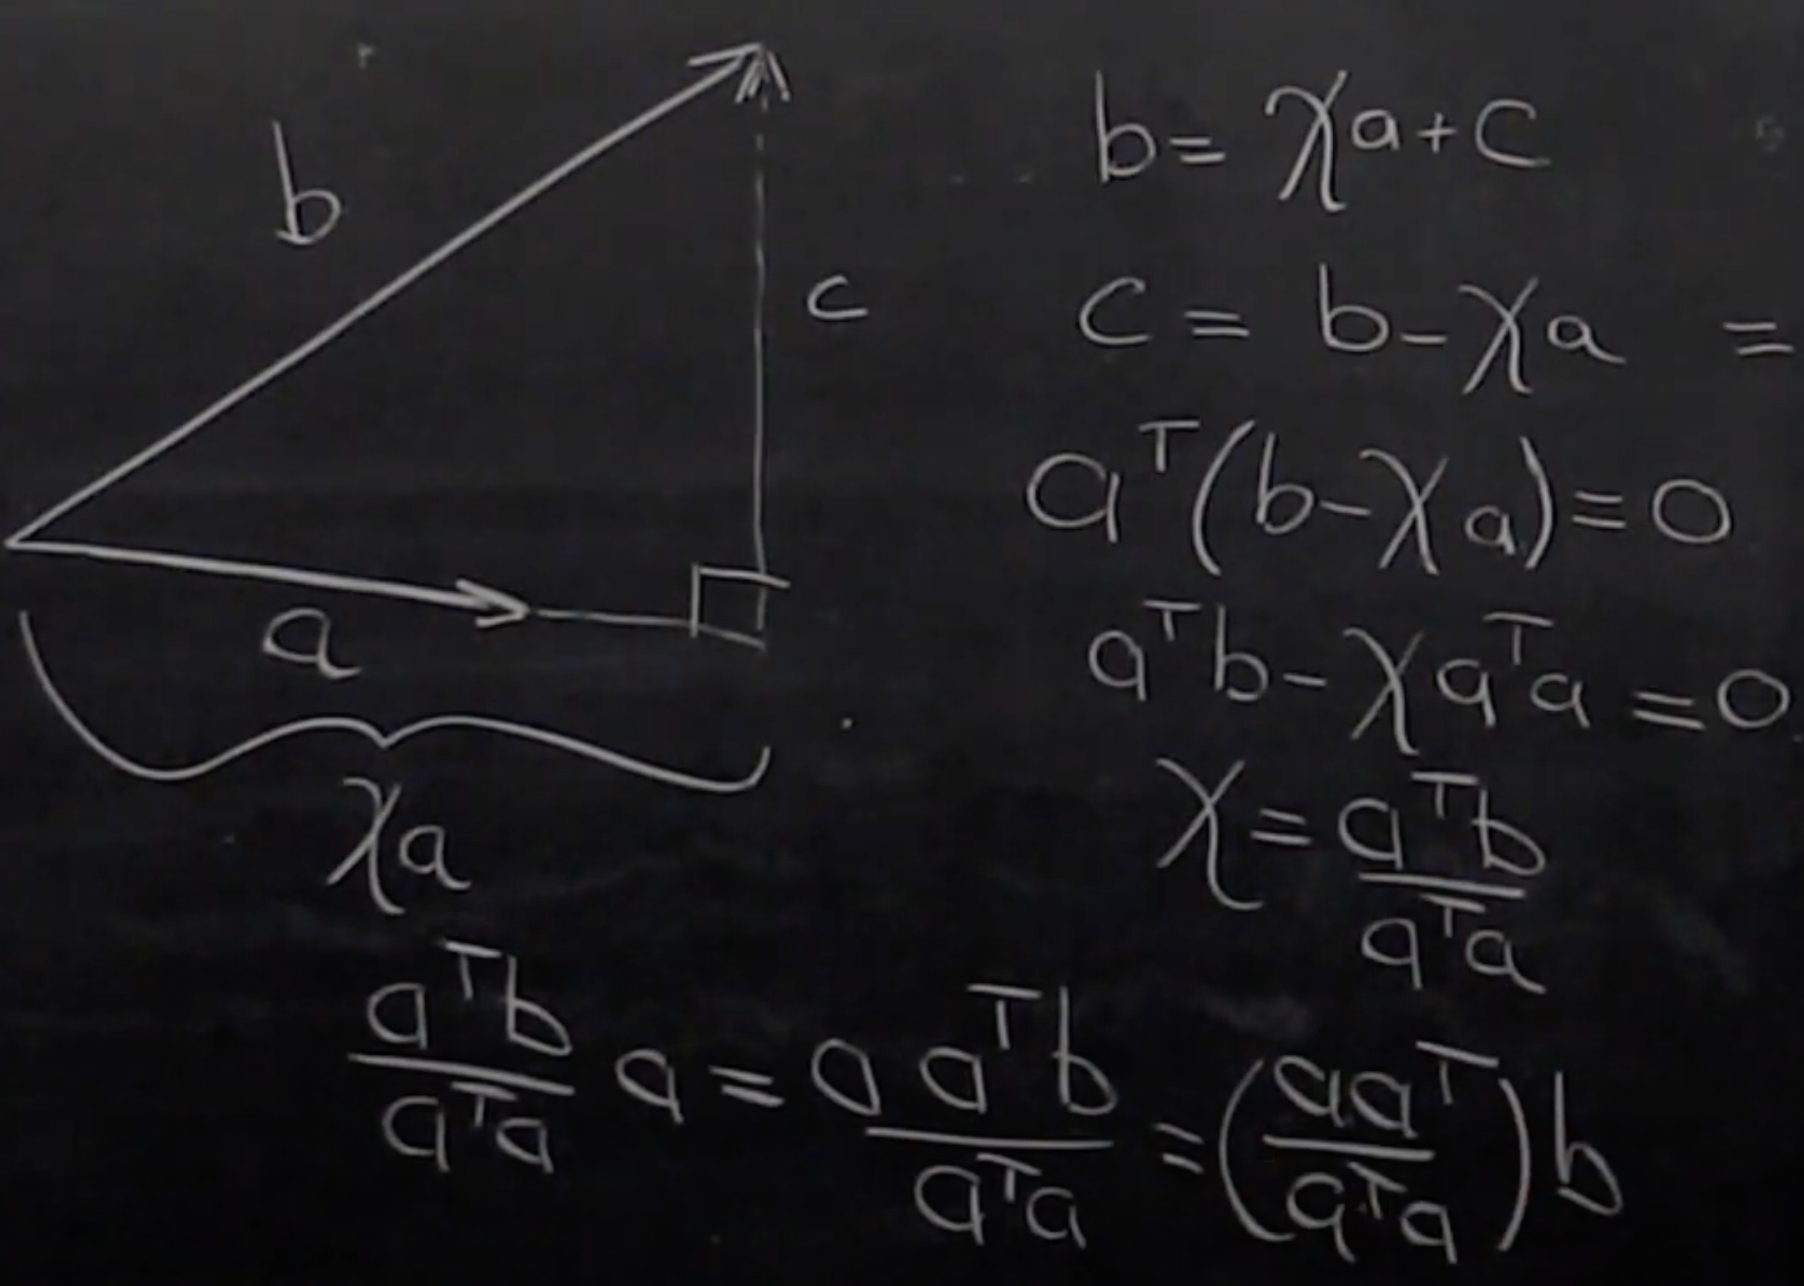 b
c
a
χa
b = χa + c
c = b - χa =
a^T(b - χa) = 0
a^T b - χ a^T a = 0
χ = a^T b / a^T a
a^T b / a^T a a = a a^T b / a^T a = (a a^T / a^T a) b